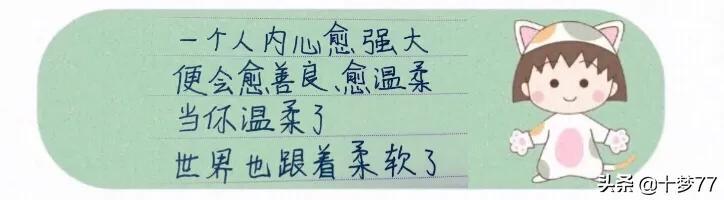 一个人内心愈强大
便会愈善良、愈温柔
当你温柔了
世界也跟着柔软了
头条 @十梦77